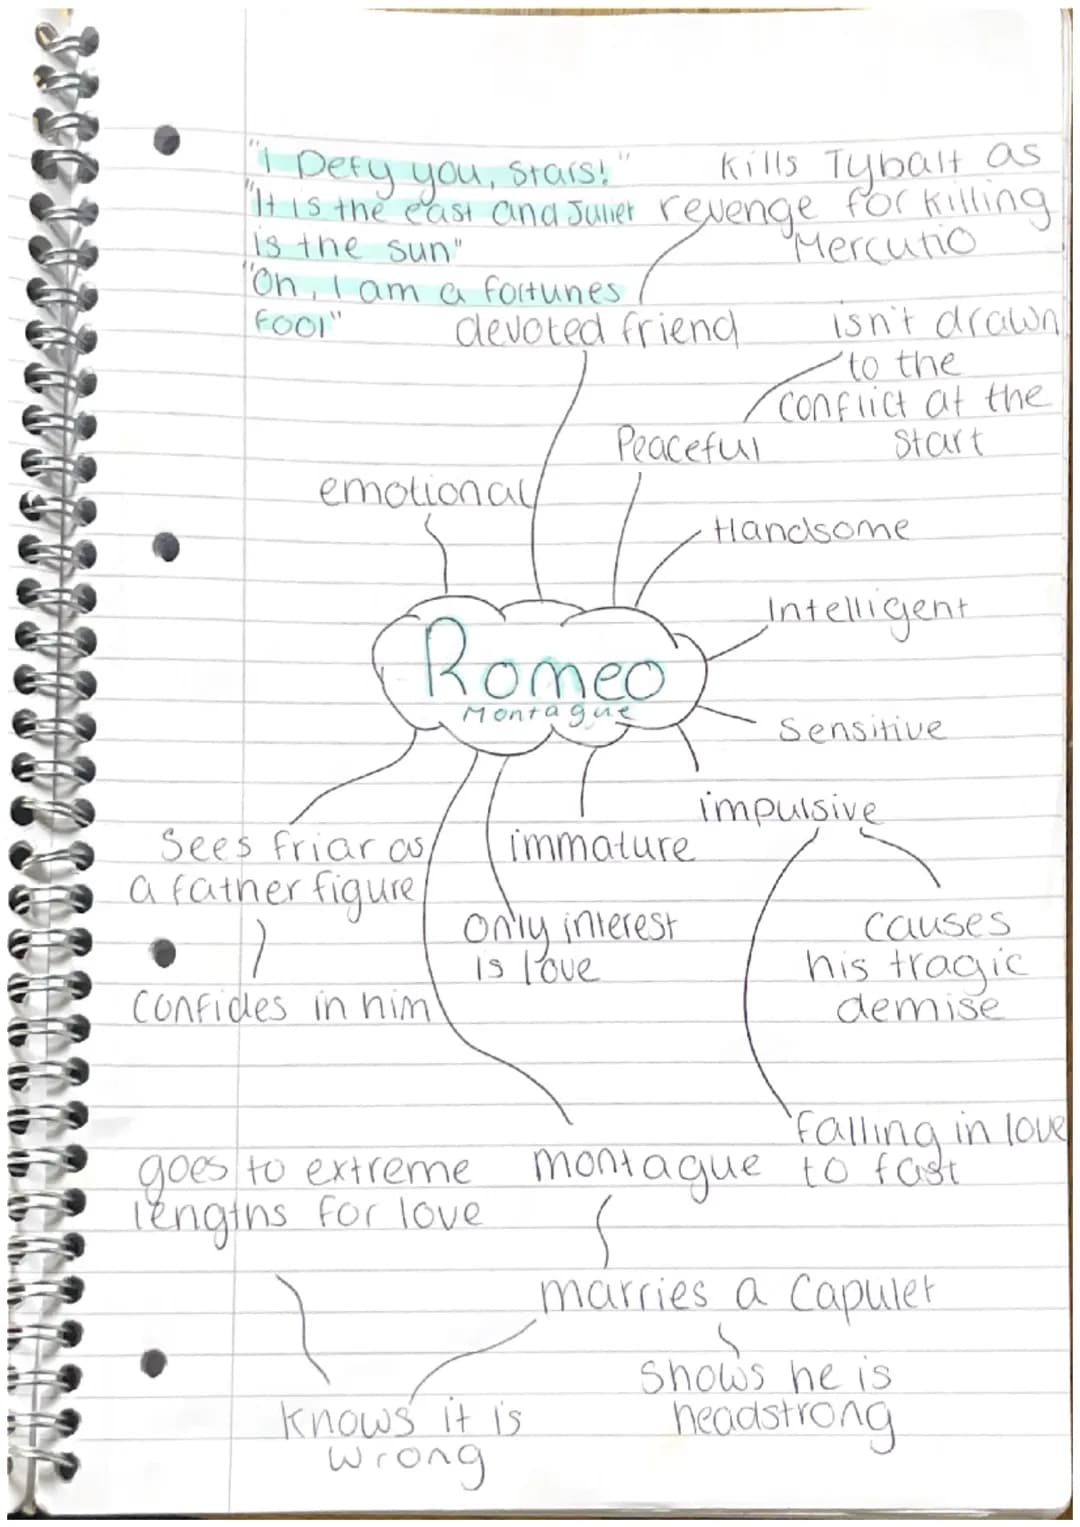 "I Defy you, Stars!"
"It is the east and Juliet
is the sun"
"Oh, I am a fortunes
fool"
Kills Tybalt as
revenge for killing
Mercutio
devoted friend
isn't drawn
to the
conflict at the
start
Peaceful
emotional
Handsome
Intelligent
Romeo
Montague
Sensitive
impulsive
Sees friar as
a father figure
immature
only interest
is love
causes
his tragic
demise
confides in him
falling in love
to fast
goes to extreme
lengths for love
montague
marries a Capulet
shows he is
headstrong
knows it is
wrong